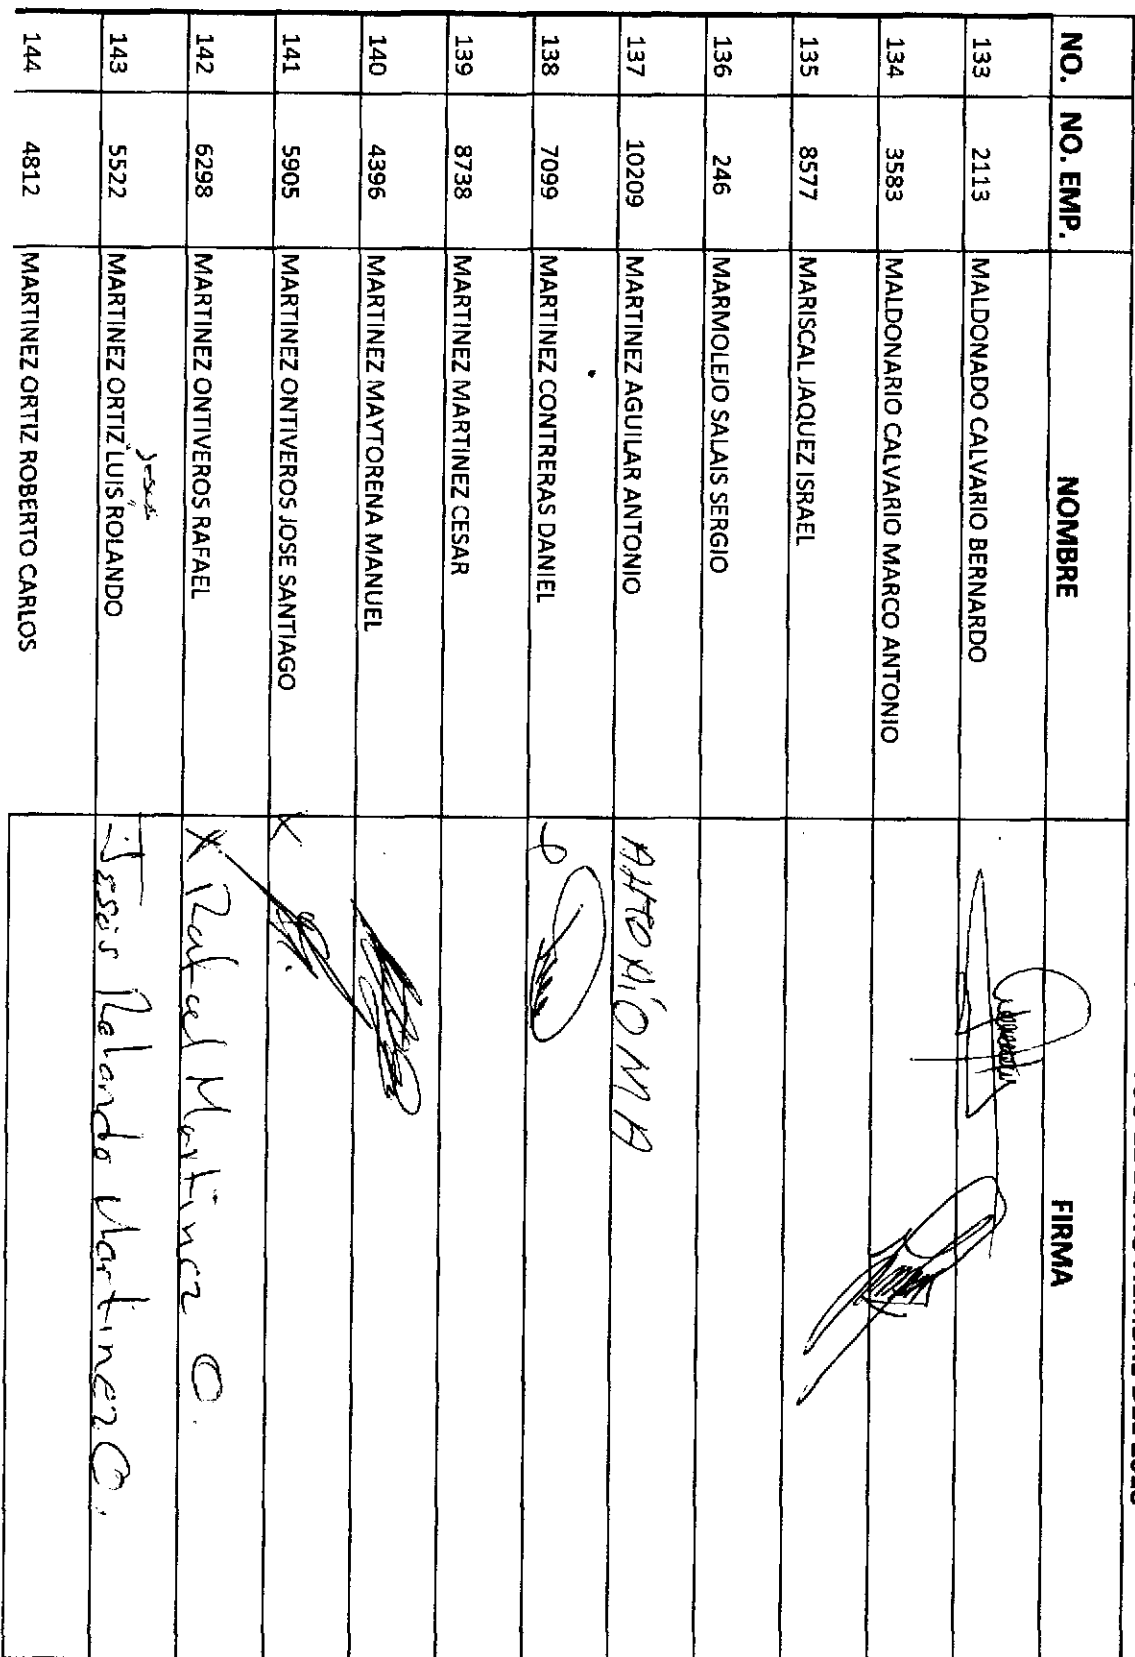 NO. NO. EMP. NOMBRE FIRMA
133 2113 MALDONADO CALVARIO BERNARDO
134 3583 MALDONARIO CALVARIO MARCO ANTONIO
135 8577 MARISCAL JAQUEZ ISRAEL
136 246 MARMOLEJO SALAIS SERGIO
137 10209 MARTINEZ AGUILAR ANTONIO ANTONIO M A
138 7099 MARTINEZ CONTRERAS DANIEL
139 8738 MARTINEZ MARTINEZ CESAR
140 4396 MARTINEZ MAYTORENA MANUEL
141 5905 MARTINEZ ONTIVEROS JOSE SANTIAGO X
142 6298 MARTINEZ ONTIVEROS RAFAEL X Rafael Martinez O.
Jesús
143 5522 MARTINEZ ORTIZ "LUIS" ROLANDO Jesús Rolando Martinez O.
144 4812 MARTINEZ ORTIZ ROBERTO CARLOS